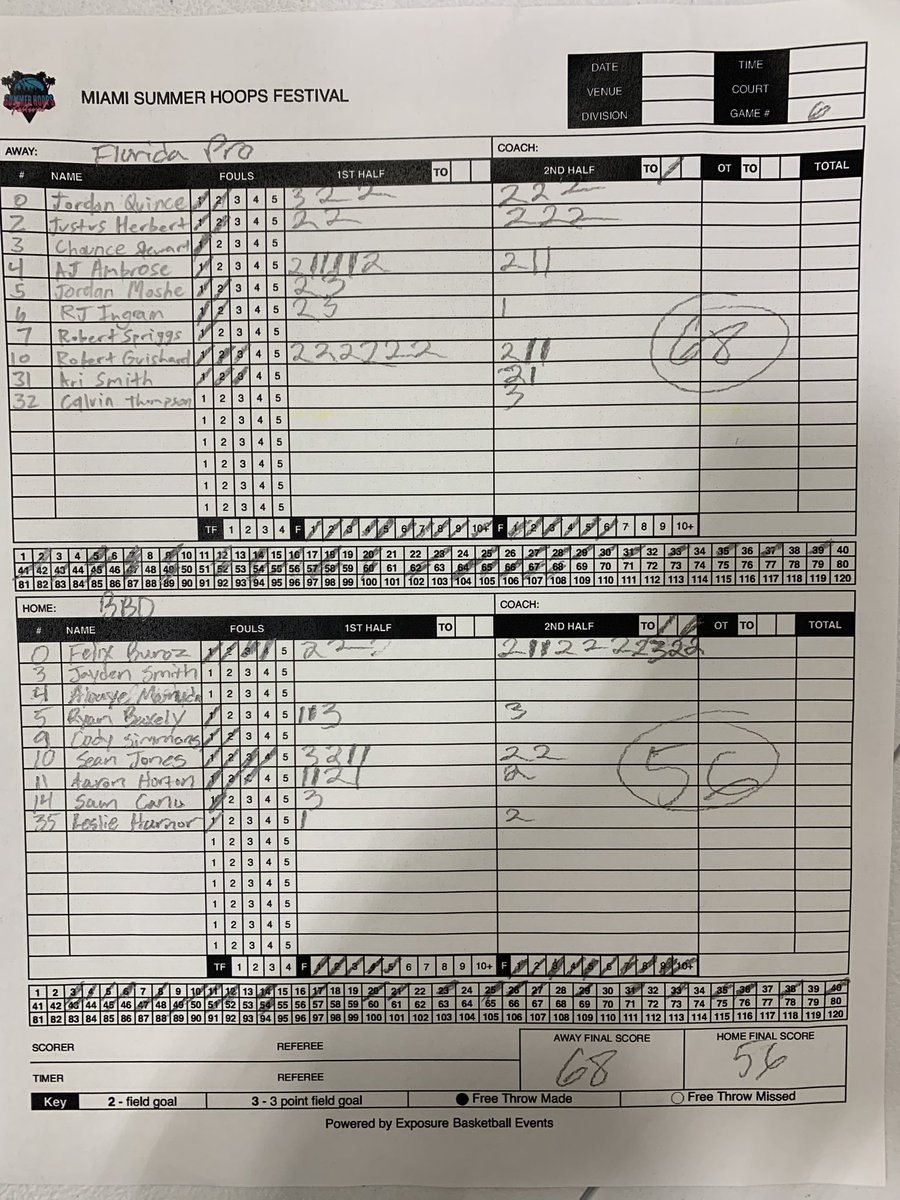 SUMMER HOOPS
MIAMI SUMMER HOOPS FESTIVAL
DATE TIME
VENUE COURT
DIVISION GAME # 6
AWAY: Florida Pro COACH:
# NAME FOULS 1ST HALF TO 2ND HALF TO OT TO TOTAL
0 Jordan Quince 1 2 3 4 5 3 2 2 2 2 2
2 Justus Herbert 1 2 3 4 5 2 2 2 2 2
3 Chaunce Stewart 1 2 3 4 5
4 AJ Ambrose 1 2 3 4 5 2 1 1 1 1 1 2 2 1 1
5 Jordan Moshe 1 2 3 4 5 2 3
6 RJ Ingram 1 2 3 4 5 2 3 1
7 Robert Spriggs 1 2 3 4 5
10 Robert Guishard 1 2 3 4 5 2 2 2 2 2 2 2 1 1
31 Ari Smith 1 2 3 4 5 2 1
32 Calvin Thompson 1 2 3 4 5 3
68
1 2 3 4 5
1 2 3 4 5
1 2 3 4 5
1 2 3 4 5
1 2 3 4 5
TF 1 2 3 4 F 1 2 3 4 5 6 7 8 9 10+ F 1 2 3 4 5 6 7 8 9 10+
1 2 3 4 5 6 7 8 9 10 11 12 13 14 15 16 17 18 19 20 21 22 23 24 25 26 27 28 29 30 31 32 33 34 35 36 37 38 39 40
41 42 43 44 45 46 47 48 49 50 51 52 53 54 55 56 57 58 59 60 61 62 63 64 65 66 67 68 69 70 71 72 73 74 75 76 77 78 79 80
81 82 83 84 85 86 87 88 89 90 91 92 93 94 95 96 97 98 99 100 101 102 103 104 105 106 107 108 109 110 111 112 113 114 115 116 117 118 119 120
HOME: BBD COACH:
# NAME FOULS 1ST HALF TO 2ND HALF TO OT TO TOTAL
0 Felix 1 2 3 4 5 2 2 2 1 1 2 2 2 2 3 2 2
3 Jayden Smith 1 2 3 4 5
4 1 2 3 4 5
5 Ryan 1 2 3 4 5 1 1 3 3
9 Cody Simmons 1 2 3 4 5
10 Sean Jones 1 2 3 4 5 3 2 1 1 2 2
11 Aaron Horton 1 2 3 4 5 1 1 2 1 2
14 Sam 1 2 3 4 5 3
35 Leslie 1 2 3 4 5 1 2
56
1 2 3 4 5
1 2 3 4 5
1 2 3 4 5
1 2 3 4 5
1 2 3 4 5
1 2 3 4 5
TF 1 2 3 4 F 1 2 3 4 5 6 7 8 9 10+ F 1 2 3 4 5 6 7 8 9 10+
1 2 3 4 5 6 7 8 9 10 11 12 13 14 15 16 17 18 19 20 21 22 23 24 25 26 27 28 29 30 31 32 33 34 35 36 37 38 39 40
41 42 43 44 45 46 47 48 49 50 51 52 53 54 55 56 57 58 59 60 61 62 63 64 65 66 67 68 69 70 71 72 73 74 75 76 77 78 79 80
81 82 83 84 85 86 87 88 89 90 91 92 93 94 95 96 97 98 99 100 101 102 103 104 105 106 107 108 109 110 111 112 113 114 115 116 117 118 119 120
SCORER REFEREE AWAY FINAL SCORE HOME FINAL SCORE
68 56
TIMER REFEREE
Key 2 - field goal 3 - 3 point field goal Free Throw Made Free Throw Missed
Powered by Exposure Basketball Events